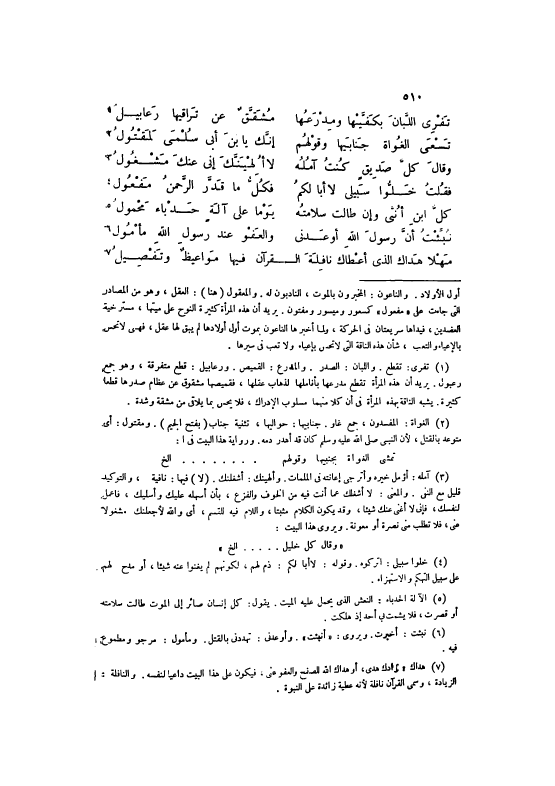 ٥١٠
تفرى اللبان بكفيها ومدرعها مشقق عن تراقيها رعابيل ١
تسعى الغواة جنابيها وقولهم إنك يا بن أبى سلمى لمقتول ٢
وقال كل صديق كنت آمله لا ألهينك إنى عنك مشغول ٣
فقلت خلوا سبيلى لا أبا لكم فكل ما قدر الرحمن مفعول ٤
كل ابن أنثى وإن طالت سلامته يوما على آلة حدباء محمول ٥
نبئت أن رسول الله أوعدنى والعفو عند رسول الله مأمول ٦
مهلا هداك الذى أعطاك نافلة القرآن فيها مواعيظ وتفصيل ٧
أول الأولاد . والناعون : المخبرون بالموت ، النادبون له . والمعقول (هنا) : العقل ، وهو من المصادر
التى جاءت على « مفعول » كمعسور وميسور ومفتون . يريد أن هذه المرأة كثيرة النوح على ميتها ، مسترخية
العضدين ، فيداها سريعتان فى الحركة ، ولما أخبرها الناعون بموت أول أولادها لم يبق لها عقل ، فهى لا تحس
بالإعياء والتعب ، شأن هذه الناقة التى لا تحس بإعياء ولا تعب فى سيرها .
(١) تفرى : تقطع . واللبان : الصدر . والمدرع : القميص . ورعابيل : قطع متفرقة ، وهو جمع
رعبول . يريد أن هذه المرأة تقطع مدرعها بأناملها لذهاب عقلها ، فقميصها مشقوق عن عظام صدرها قطعا
كثيرة . يشبه الناقة بهذه المرأة فى أن كلا منهما مسلوب الإدراك ، فلا يحس بما يلاقى من مشقة وشدة .
(٢) الغواة : المفسدون ، جمع غاو . جنابيها : حواليها ، تثنية جناب (بفتح الجيم) . ومقتول : أى
متوعد بالقتل ، لأن النبى صلى الله عليه وسلم كان قد أهدر دمه . ورواية هذا البيت فى ا :
تمشى الغواة بجنبيها وقولهم . . . . . . . . الخ
(٣) آمله : أؤمل خيره وأترجى إعانته فى الملمات . وألهينك : أشغلنك . (لا) فيها : نافية ، والتوكيد
قليل مع النفى . والمعنى : لا أشغلك عما أنت فيه من الخوف والفزع ، بأن أسهله عليك وأسليك ، فاعمل
لنفسك ، فإنى لا أغنى عنك شيئا ، وقد يكون الكلام مثبتا ، واللام فيه للقسم ، أى والله لأجعلنك مشغولا
عنى ، فلا تطلب منى نصرة أو معونة . ويروى هذا البيت :
« وقال كل خليل . . . . . الخ »
(٤) خلوا سبيل : اتركوه . وقوله : لا أبا لكم : ذم لهم ، لكونهم لم يغنوا عنه شيئا ، أو مدح لهم
على سبيل التهكم والاستهزاء .
(٥) الآلة الحدباء : النعش الذى يحمل عليه الميت . يقول : كل إنسان صائر إلى الموت طالت سلامته
أو قصرت ، فلا يشمت فى أحد إذ هلكت .
(٦) نبئت : أخبرت . ويروى : « أنبئت » . وأوعدنى : تهددنى بالقتل . ومأمول : مرجو ومطموع
فيه .
(٧) هداك « زادك هدى ، أو هداك الله للصفح والعفو عنى ، فيكون على هذا البيت داعيا لنفسه . والنافلة :
الزيادة ، وسمى القرآن نافلة لأنه عطية زائدة على النبوة .